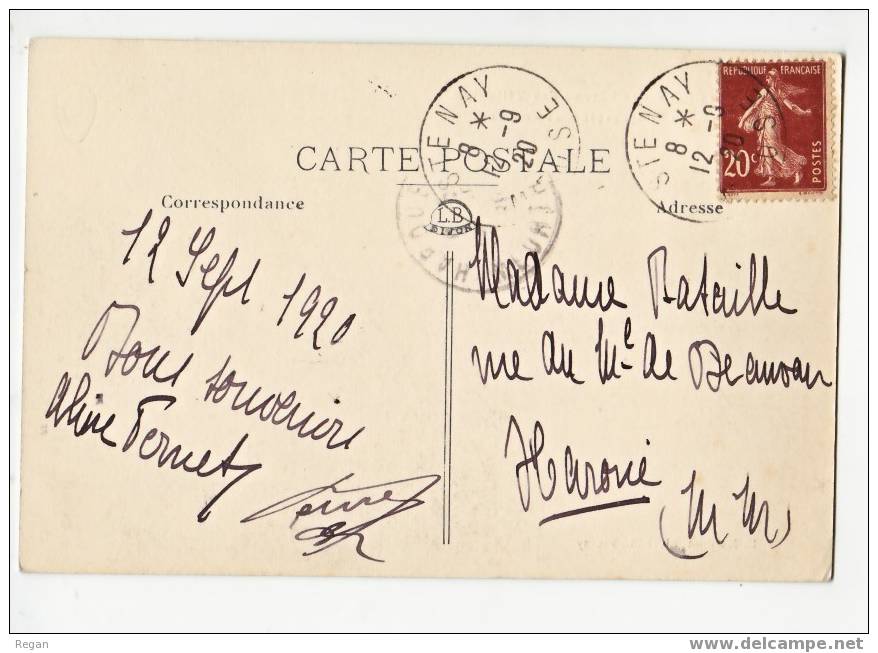 CARTE POSTALE
Correspondance
Adresse
L.B
DIJON
STENAY
8 *
12 -9
20
MEUSE
HAROUE
STENAY
8 *
12 -9
20
REPUBLIQUE FRANÇAISE
20c
POSTES
12 Sept 1920
Bons souvenirs
Aline Fernet
Madame Bataille
rue du Mal de Beauvau
Haroué
(M M)
Regan
www.delcampe.net